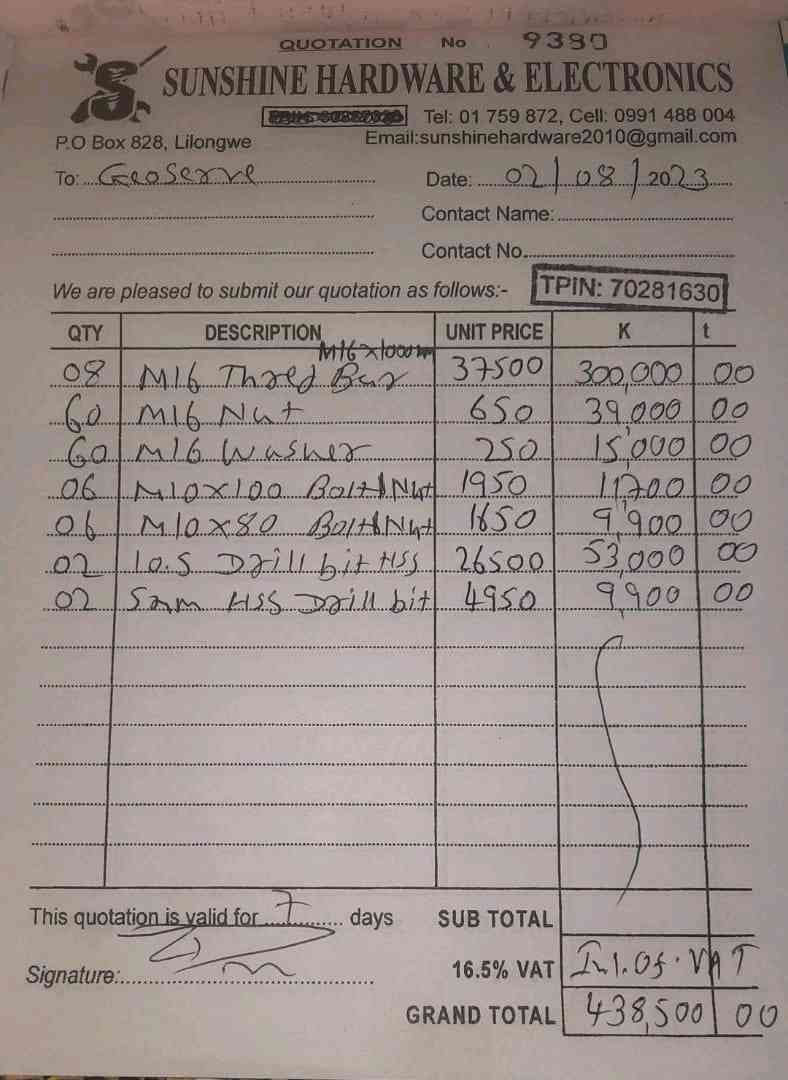 QUOTATION No 9380
SUNSHINE HARDWARE & ELECTRONICS
Tel: 01 759 872, Cell: 0991 488 004
P.O Box 828, Lilongwe Email:sunshinehardware2010@gmail.com
To: GeoServe Date: 02/08/2023
Contact Name:
Contact No.
We are pleased to submit our quotation as follows:- TPIN: 70281630
QTY DESCRIPTION UNIT PRICE K t
M16x1000m
08 M16 Thred Bar 37500 300,000 00
60 M16 Nut 650 39,000 00
60 M16 Washer 250 15,000 00
06 M10x100 Bolt&Nut 1950 11,700 00
06 M10x80 Bolt&Nut 1650 9,900 00
02 10.5 Drill bit HSS 26500 53,000 00
02 5mm HSS Drill bit 4950 9,900 00
This quotation is valid for 7 days SUB TOTAL
Signature: 16.5% VAT Inl. Of. VAT
GRAND TOTAL 438,500 00